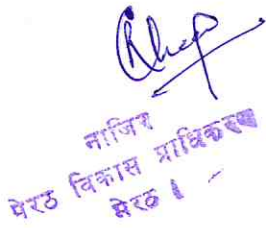 नाजिर
मेरठ विकास प्राधिकरण
मेरठ